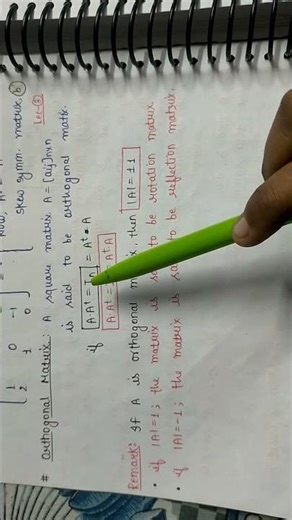 [1 0 -1
2 1 0]
Now, A
skew symm. matrix. (b)
Lec-(3)
# Orthogonal Matrix : A square matrix A = [aij]n×n
is said to be orthogonal matx.
if A·Aᵗ = In = Aᵗ·A
A·Aᵗ = AᵗA
Remark: If A is orthogonal then |A| = ±1
• if |A| = 1; the matrix is to be rotation matrix
• if |A| = -1; the matrix is to be reflection matrix.